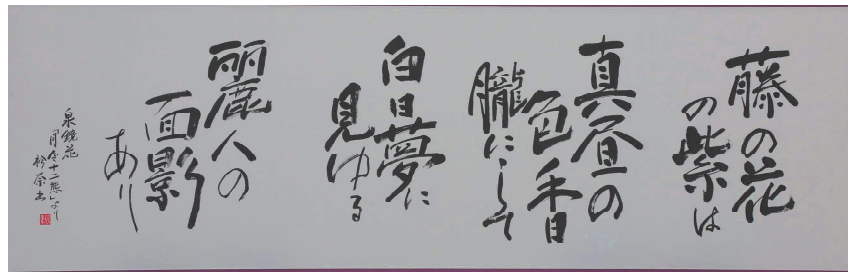 藤の花
の紫は
真昼の
色香
朧にして
白日夢に
見ゆる
麗人の
面影
あり
泉鏡花
「月令十二態」より